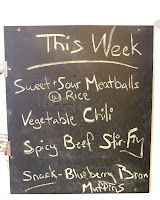 This Week
Sweet + Sour Meatballs
w/ Rice
Vegetable Chili
Spicy Beef Stir-Fry
Snack - Blueberry Bran
Muffins